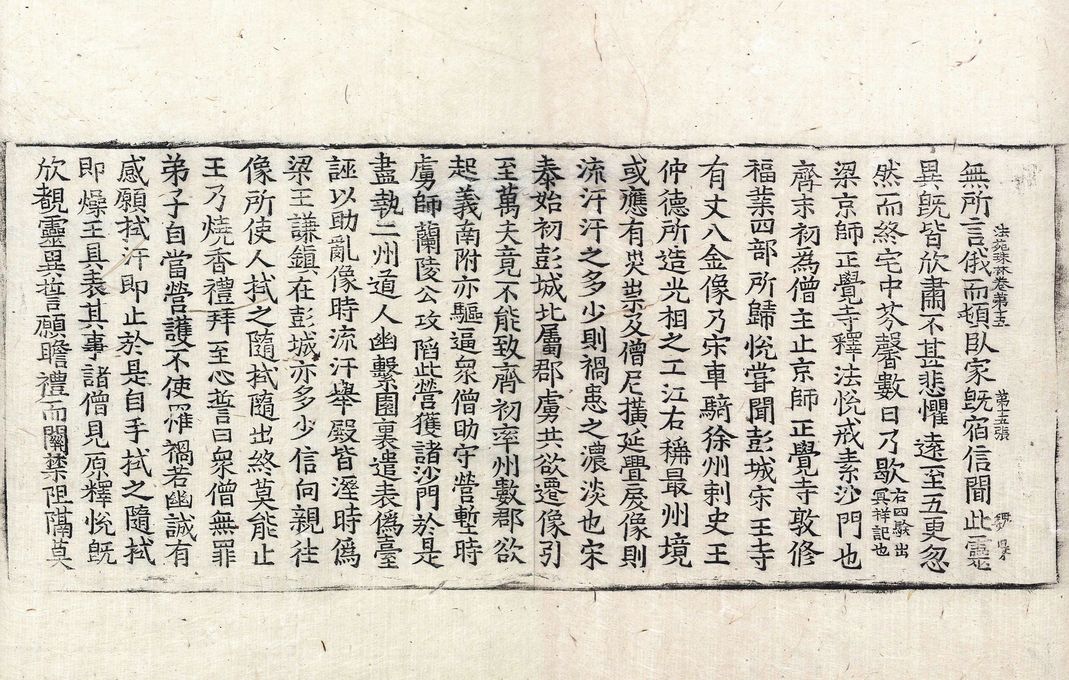 無所言俄而頓臥家旣宿信聞此靈
法苑珠林卷第十五　第十五張
異旣皆欣肅不甚悲懼遠至五更忽
然而終宅中芬馨數日乃歇右四驗出冥祥記也
梁京師正覺寺釋法悅戒素沙門也
齊末初為僧主止京師正覺寺敦修
福業四部所歸悅甞聞彭城宋王寺
有丈八金像乃宋車騎徐州刺史王
仲德所造光相之工江右稱最州境
或應有灾祟及僧尼撗延舋戾像則
流汗汗之多少則禍患之濃淡也宋
泰始初彭城北屬郡虜共欲遷像引
至萬夫竟不能致齊初兖州數郡欲
起義南附亦驅逼衆僧助守營壍時
虜師蘭陵公攻陷此營獲諸沙門於是
盡執二州道人幽繫園裏遣表僞臺
誣以助亂像時流汗舉殿皆溼時僞
梁王謙鎮在彭城亦多少信向親往
像所使人拭之隨拭隨出終莫能止
王乃燒香禮拜至心誓曰衆僧無罪
弟子自當營護不使罹禍若幽誠有
感願拭汗即止於是自手拭之隨拭
即燥王具表其事諸僧見原釋悅旣
欣覩靈異誓願瞻禮而關禁阻隔莫